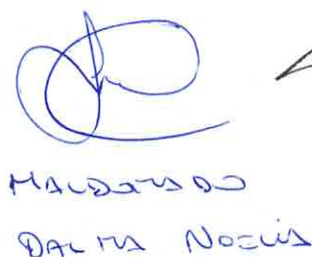 MALDONADO
DALMA NOELIA